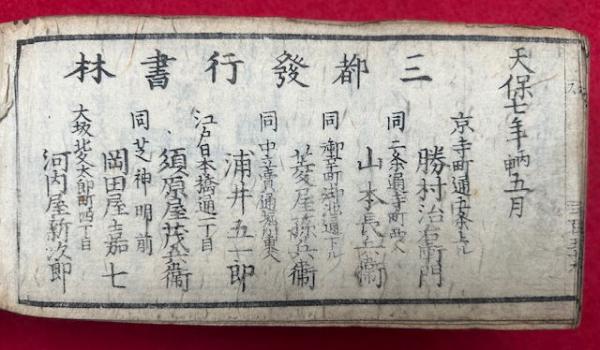 天保七年丙申五月
三都發行書林
京寺町通五条上ル
勝村治右衛門
同二条通寺町西入
山本長兵衞
同御幸町御池通下ル
菱屋孫兵衞
同中立賣通堀川東入
浦井五一郎
江戸日本橋通一丁目
須原屋茂兵衞
同芝神明前
岡田屋嘉七
大坂北久太郎町四丁目
河内屋新次郎